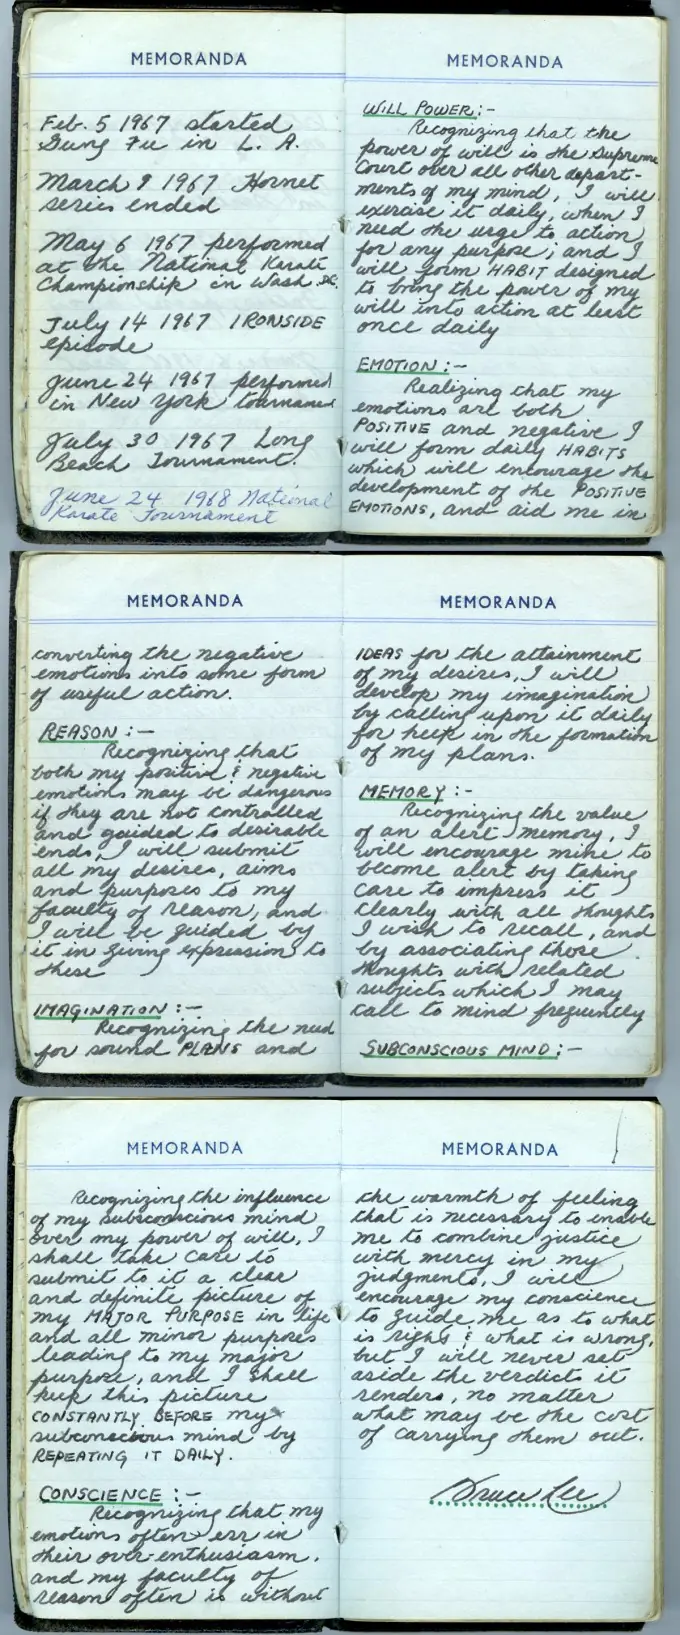 MEMORANDA
Feb. 5 1967 started
Gung Fu in L. A.
March 9 1967 Hornet
series ended
May 6 1967 performed
at the National Karate
Championship in Wash DC.
July 14 1967 IRONSIDE
episode
June 24 1967 performed
in New York tournament
July 30 1967 Long
Beach Tournament.
June 24 1968 National
Karate Tournament
MEMORANDA
WILL POWER :-
Recognizing that the
power of will is the supreme
Court over all other depart-
ments of my mind, I will
exercise it daily, when I
need the urge to action
for any purpose; and I
will form HABIT designed
to bring the power of my
will into action at least
once daily
EMOTION :-
Realizing that my
emotions are both
POSITIVE and negative I
will form daily HABITS
which will encourage the
development of the POSITIVE
EMOTIONS, and aid me in
MEMORANDA
converting the negative
emotions into some form
of useful action.
REASON :-
Recognizing that
both my positive & negative
emotions may be dangerous
if they are not controlled
and guided to desirable
ends, I will submit
all my desires, aims
and purposes to my
faculty of reason, and
I will be guided by
it in giving expression to
these
IMAGINATION :-
Recognizing the need
for sound PLANS and
MEMORANDA
IDEAS for the attainment
of my desires, I will
develop my imagination
by calling upon it daily
for help in the formation
of my plans.
MEMORY :-
Recognizing the value
of an alert memory, I
will encourage mine to
become alert by taking
care to impress it
clearly with all thoughts
I wish to recall, and
by associating those
thoughts with related
subjects which I may
call to mind frequently
SUBCONSCIOUS MIND :-
MEMORANDA
Recognizing the influence
of my subconscious mind
over my power of will, I
shall take care to
submit to it a clear
and definite picture of
my MAJOR PURPOSE in life
and all minor purposes
leading to my major
purpose, and I shall
keep this picture
CONSTANTLY BEFORE my
subconscious mind by
REPEATING IT DAILY.
CONSCIENCE :-
Recognizing that my
emotions often err in
their over-enthusiasm,
and my faculty of
reason often is without
MEMORANDA
the warmth of feeling
that is necessary to enable
me to combine justice
with mercy in my
judgments, I will
encourage my conscience
to guide me as to what
is right & what is wrong,
but I will never set
aside the verdicts it
renders, no matter
what may be the cost
of carrying them out.
Bruce Lee